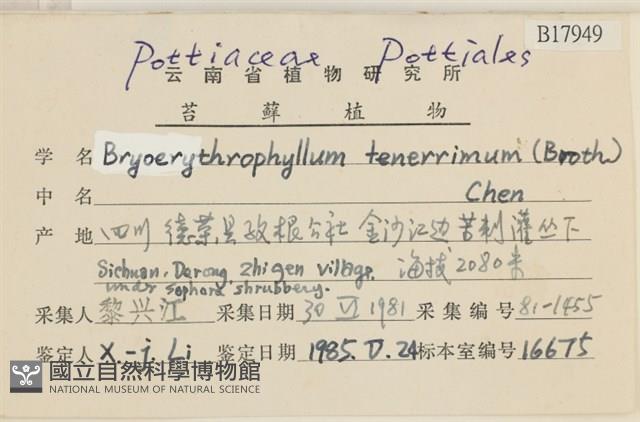 B17949
Pottiaceae Pottiales
云南省植物研究所
苔藓植物
学名 Bryoerythrophyllum tenerrimum (Broth.)
中名 Chen
产地 四川 德荣县 根公社 金沙江边 苦刺灌丛下
Sichuan, Derong, Zhigen village, 海拔2080米
under sophora shrubbery.
采集人 黎兴江 采集日期 30 VI 1981 采集编号 81-1455
鉴定人 X.-j. Li 鉴定日期 1985. V. 24 标本室编号 16675
國立自然科學博物館
NATIONAL MUSEUM OF NATURAL SCIENCE